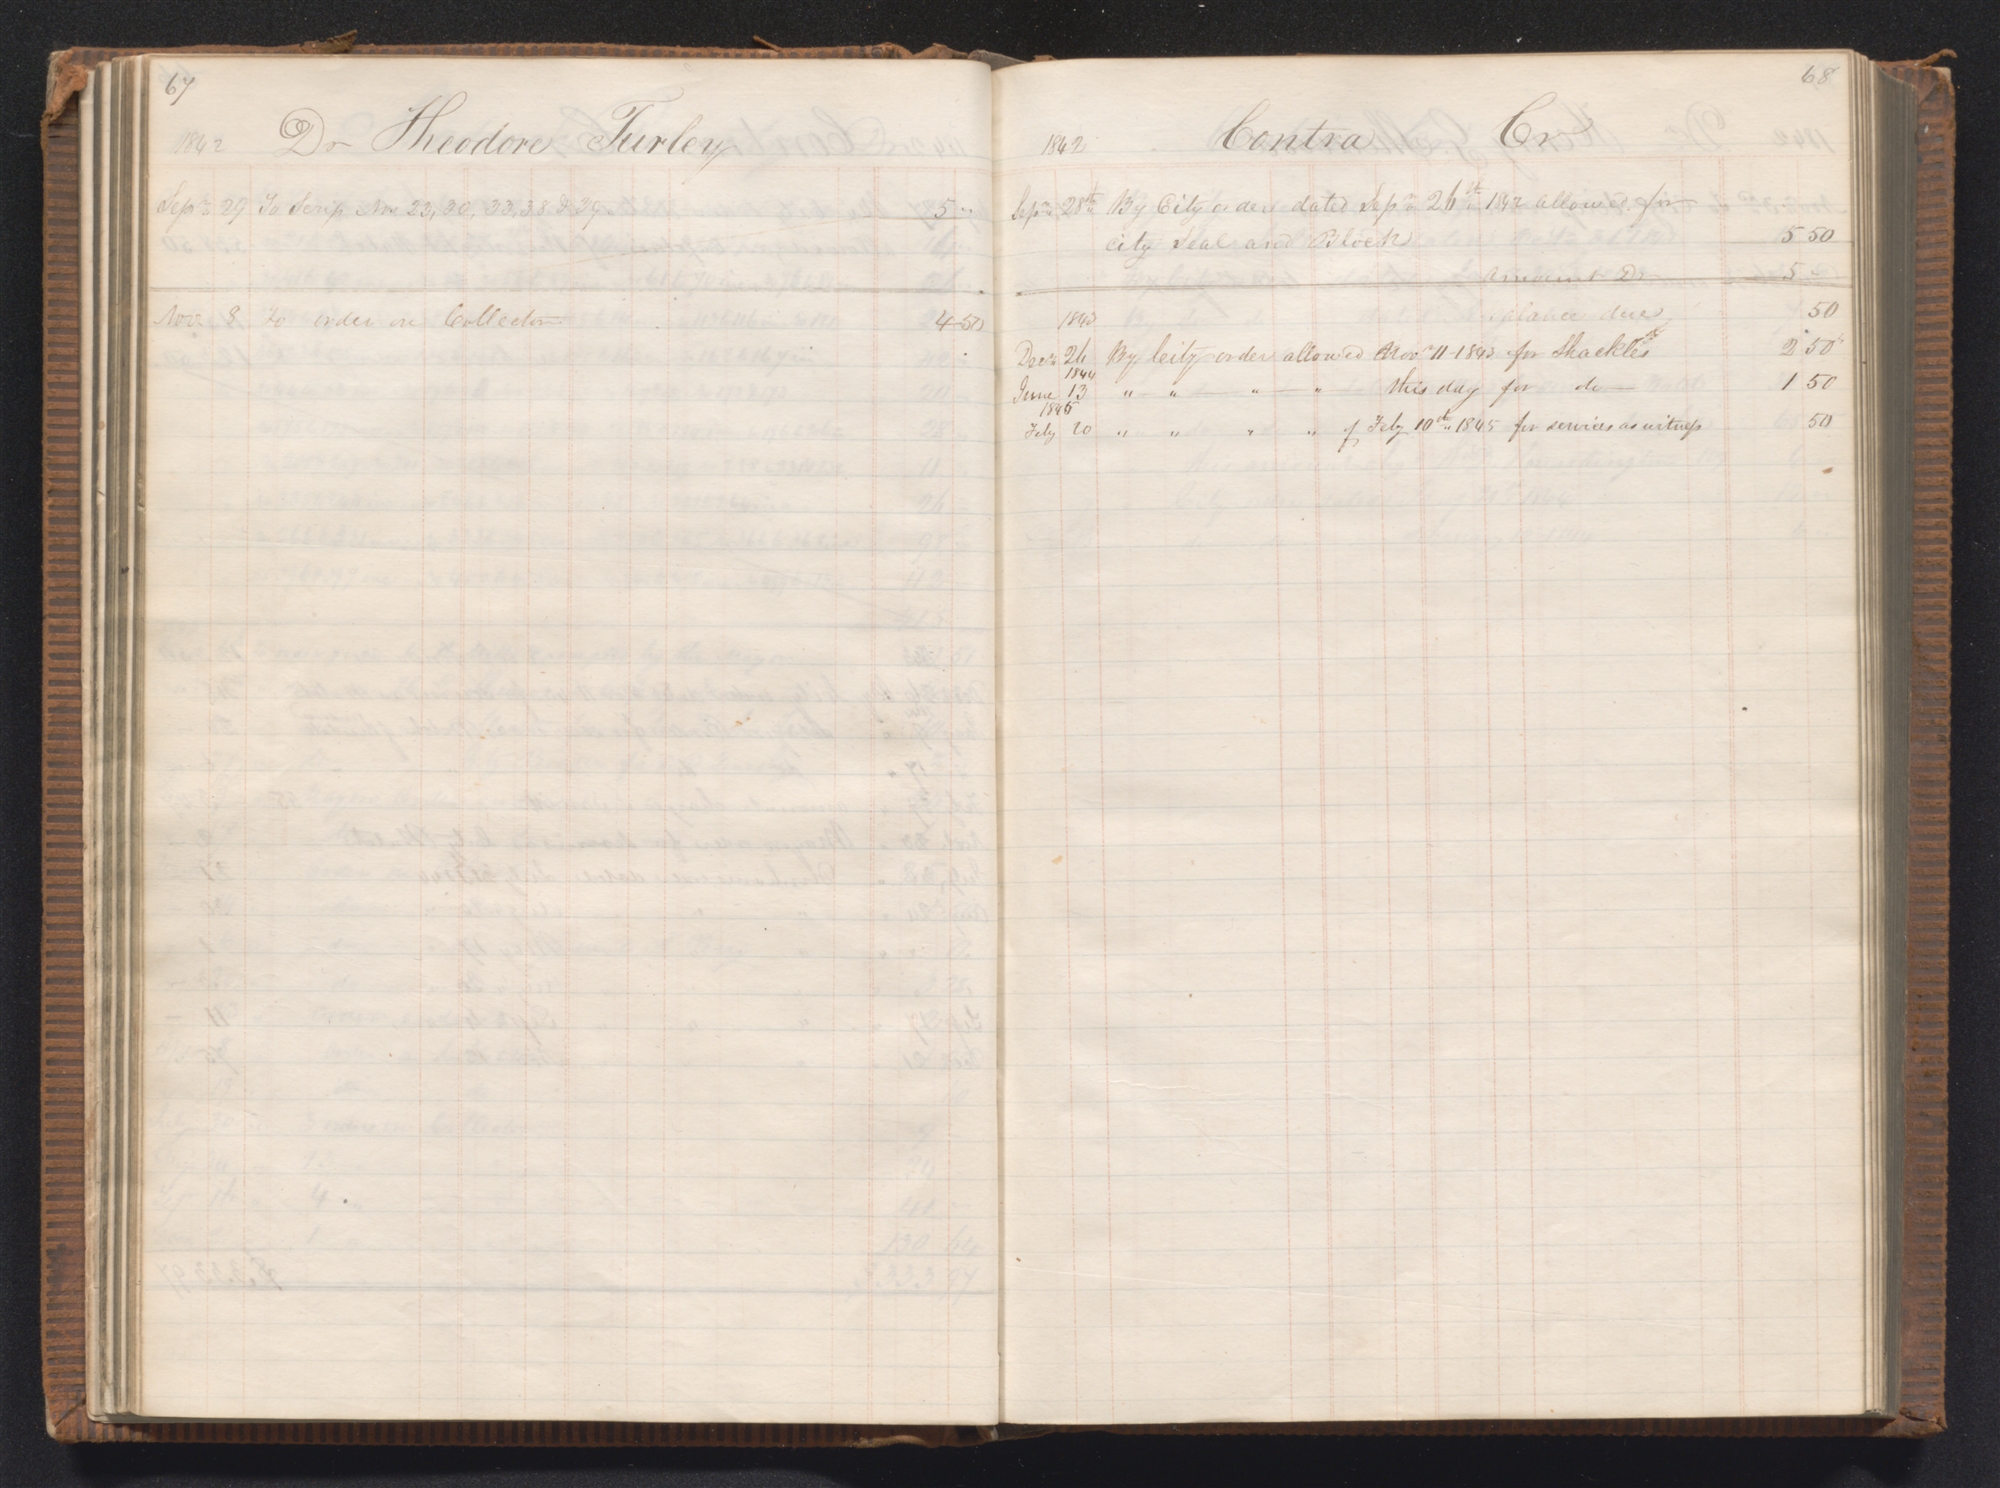 67
1842 Dr Theodore Turley
Sepr 29 To Scrip Nos 23, 30, 33, 38 & 39 5 "
Nov. 8 To order on Collector 4 50
68
1842 Contra Cr
Sepr 28th By City order dated Sepr 26th 1842 allowed for
City Seal and Block 5 50
Amount Dr 5 "
1843 Balance due 50
Decr 26 By City order allowed Novr 11th 1843 for Shackles 2 50
1844
June 13 " " " " this day for do 1 50
1845
Feby 20 " " " " of Feby 10th 1845 for services as witness 50